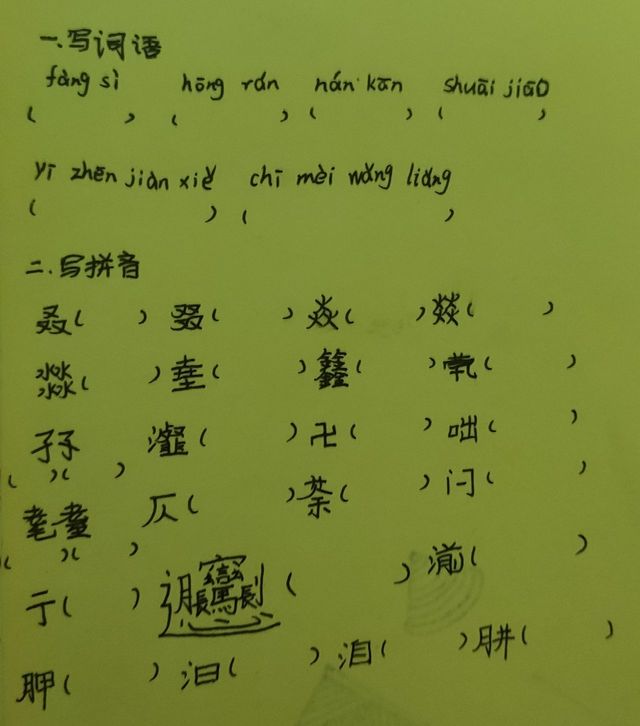 一.写词语
fàng sì hōng rán nán kān shuāi jiāo
( ) ( ) ( ) ( )
yī zhēn jiàn xiě chī mèi wǎng liǎng
( ) ( )
二.写拼音
叒( ) 叕( ) 焱( ) 燚( )
㵘( ) ( ) ( ) ( )
( ) 卍( ) 咄( )
( )( )
耄耋 仄( ) 荼( ) ( )
( )( )
亍( ) ( ) 湔( )
胛( ) 汩( ) 洎( ) 胼( )